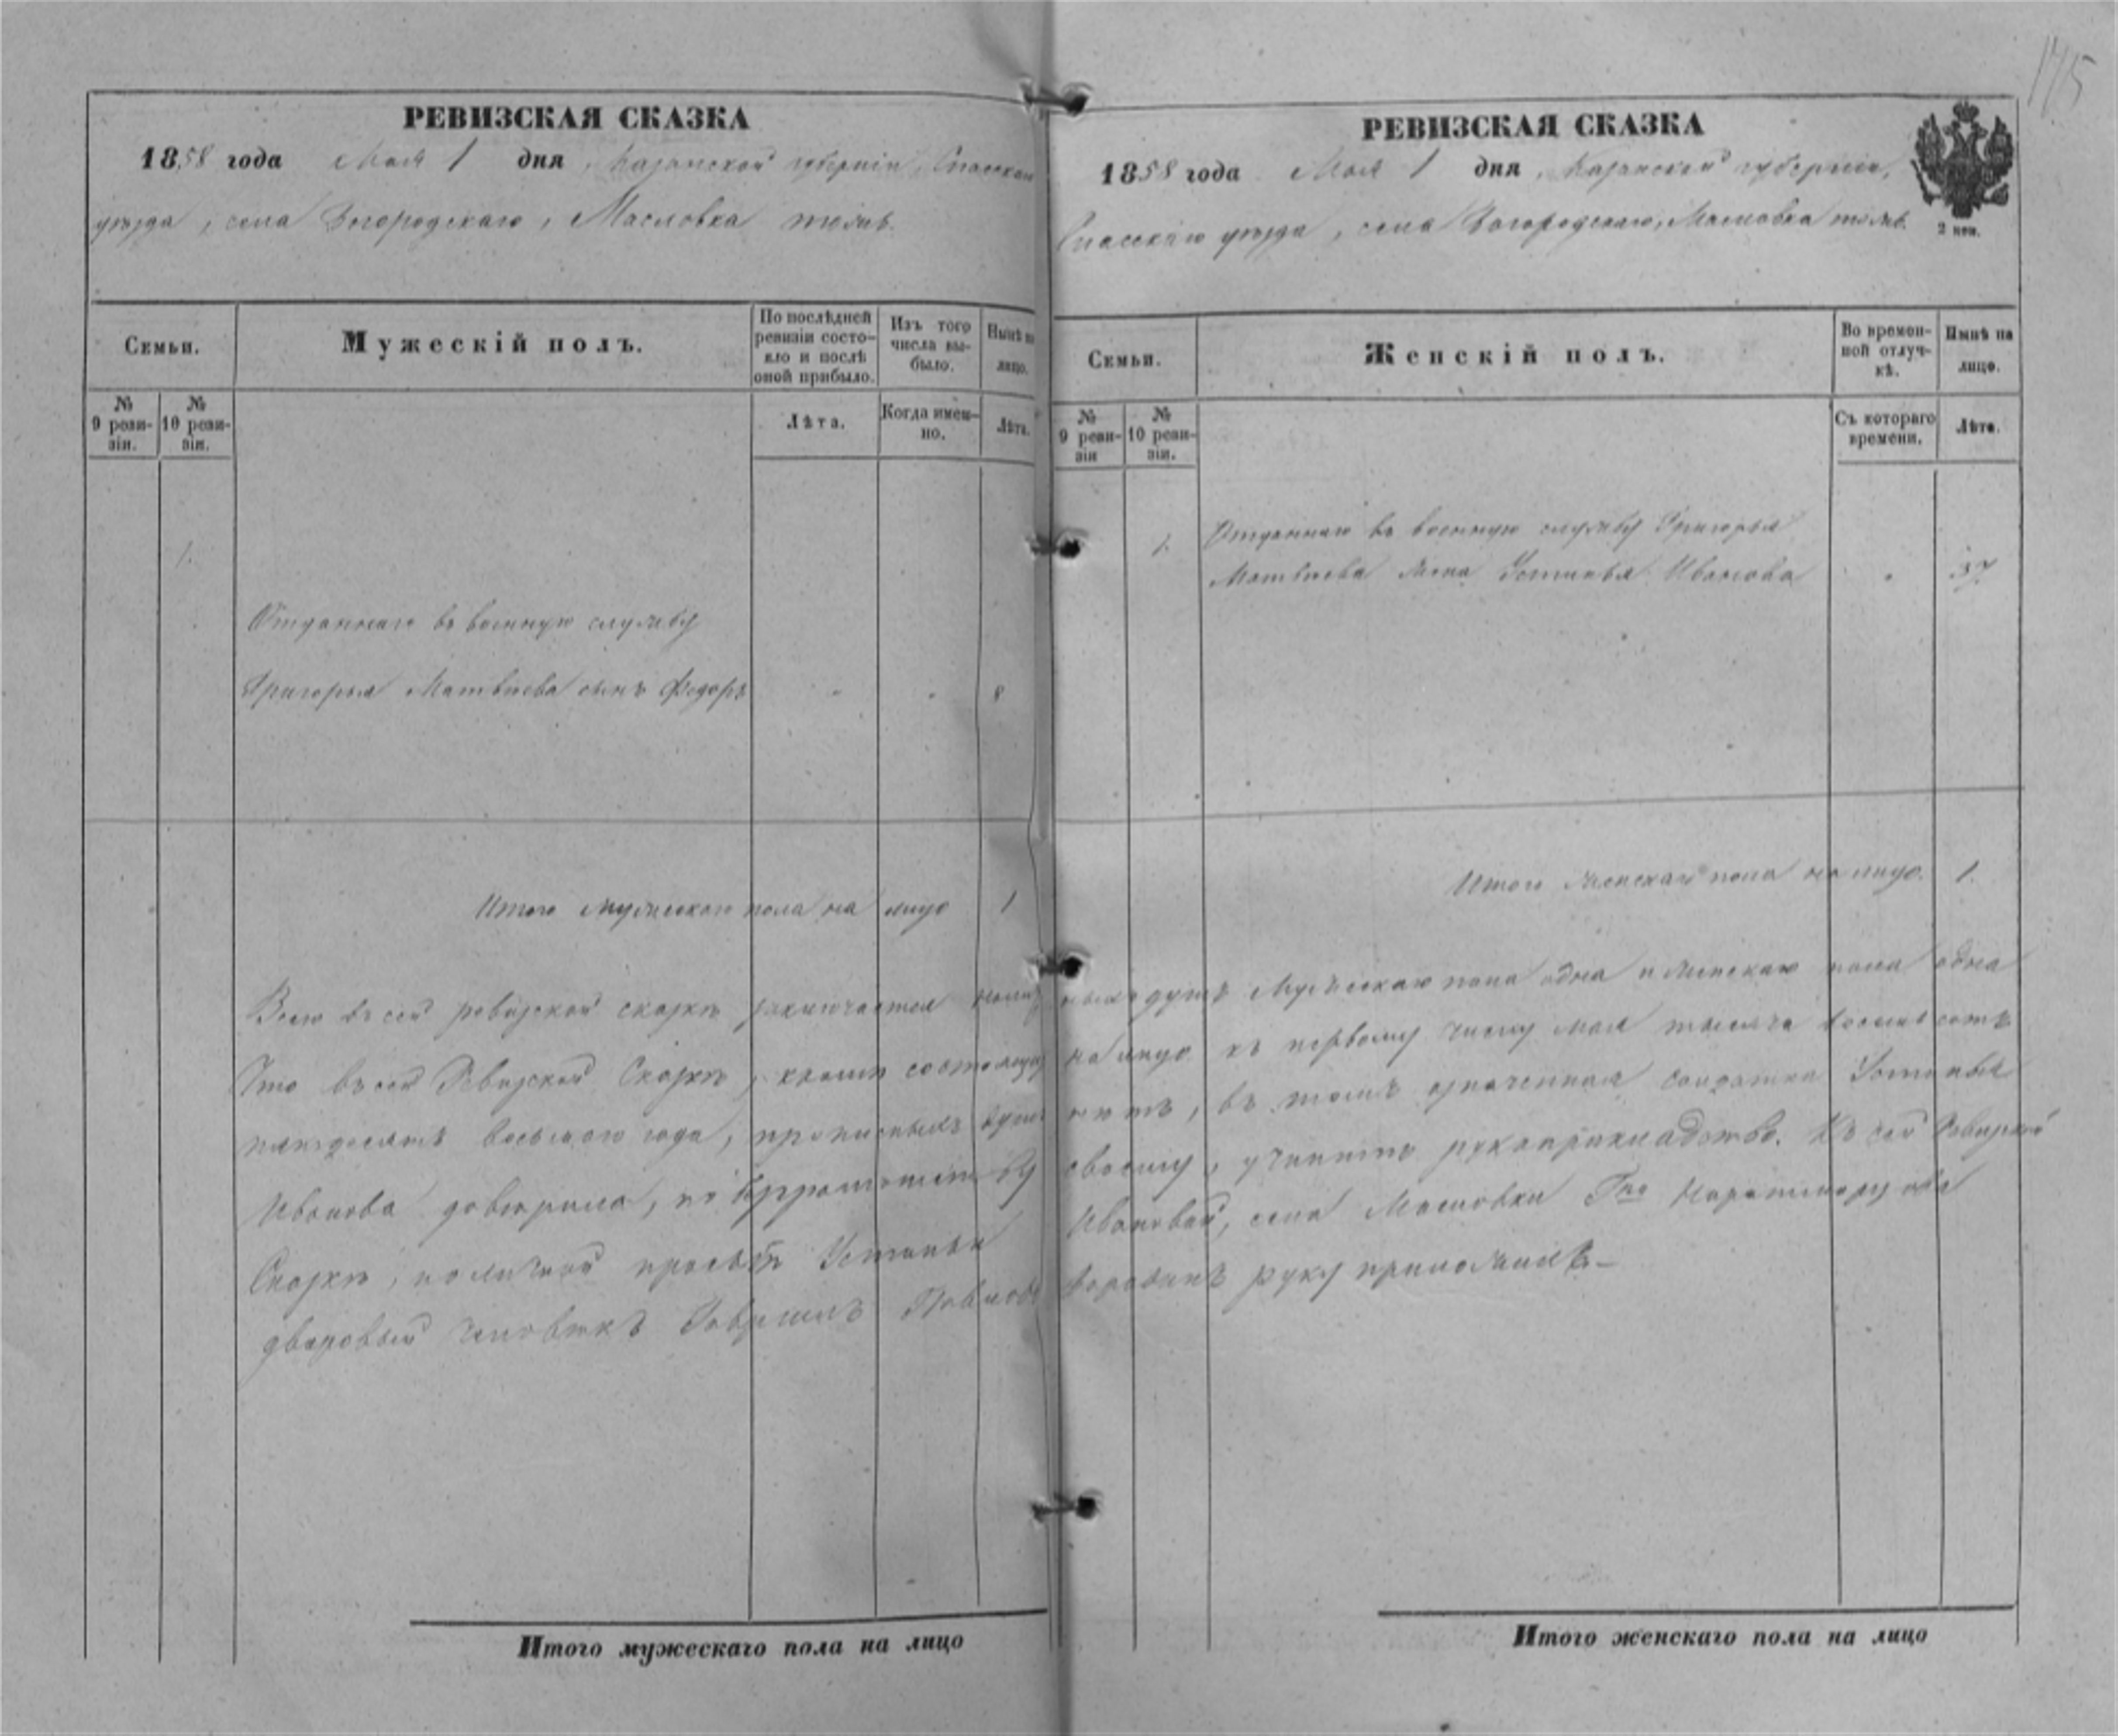 175
РЕВИЗСКАЯ СКАЗКА
1858 года Мая 1 дня, Казанской губерніи, Спасскаго
уѣзда, села Богородскаго, Масловка тожъ.
Семьи.
Мужескій полъ.
По послѣдней ревизіи состояло и послѣ оной прибыло.
Изъ того числа выбыло.
Нынѣ на лицо.
№ 9 ревизіи.
№ 10 ревизіи.
Лѣта.
Когда именно.
Лѣта.
1.
Отданнаго въ военную службу
Григорья Матвѣева сынъ Федоръ " " 8
Итого мужескаго пола на лицо 1
РЕВИЗСКАЯ СКАЗКА
1858 года Мая 1 дня, Казанской губерніи,
Спасскаго уѣзда, села Богородскаго, Масловка тожъ.
2 коп.
Семьи.
Женскій полъ.
Во временной отлучкѣ.
Нынѣ на лицо.
№ 9 ревизіи
№ 10 ревизіи.
Съ котораго времени.
Лѣта.
1. Отданнаго въ военную службу Григорья
Матвѣева жена Устинья Иванова " 37
Итого женскаго пола на лицо. 1.
Всего въ сей ревизской сказкѣ заключается мужескаго пола одна и женскаго пола одна
Что въ сей Ревизской Сказкѣ, кромѣ состоящихъ на лицо къ первому числу мая тысяча восемь сотъ
пятьдесятъ восьмаго года, прописныхъ душъ нѣтъ, въ томъ означенная солдатка Устинья
Иванова довѣрила, по безграмотству своему, учинить рукоприкладство. Къ сей Ревизской
Сказкѣ, по личной прозьбѣ Устиньи Ивановой, села Масловки Гна
дворовый человѣкъ Гаврилъ Павловъ руку приложилъ
Итого мужескаго пола на лицо
Итого женскаго пола на лицо